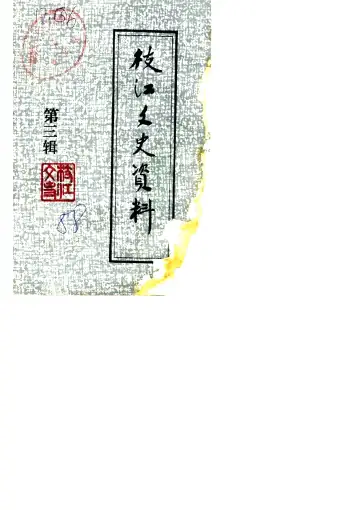 枝江文史資料
第三辑
枝江
文史